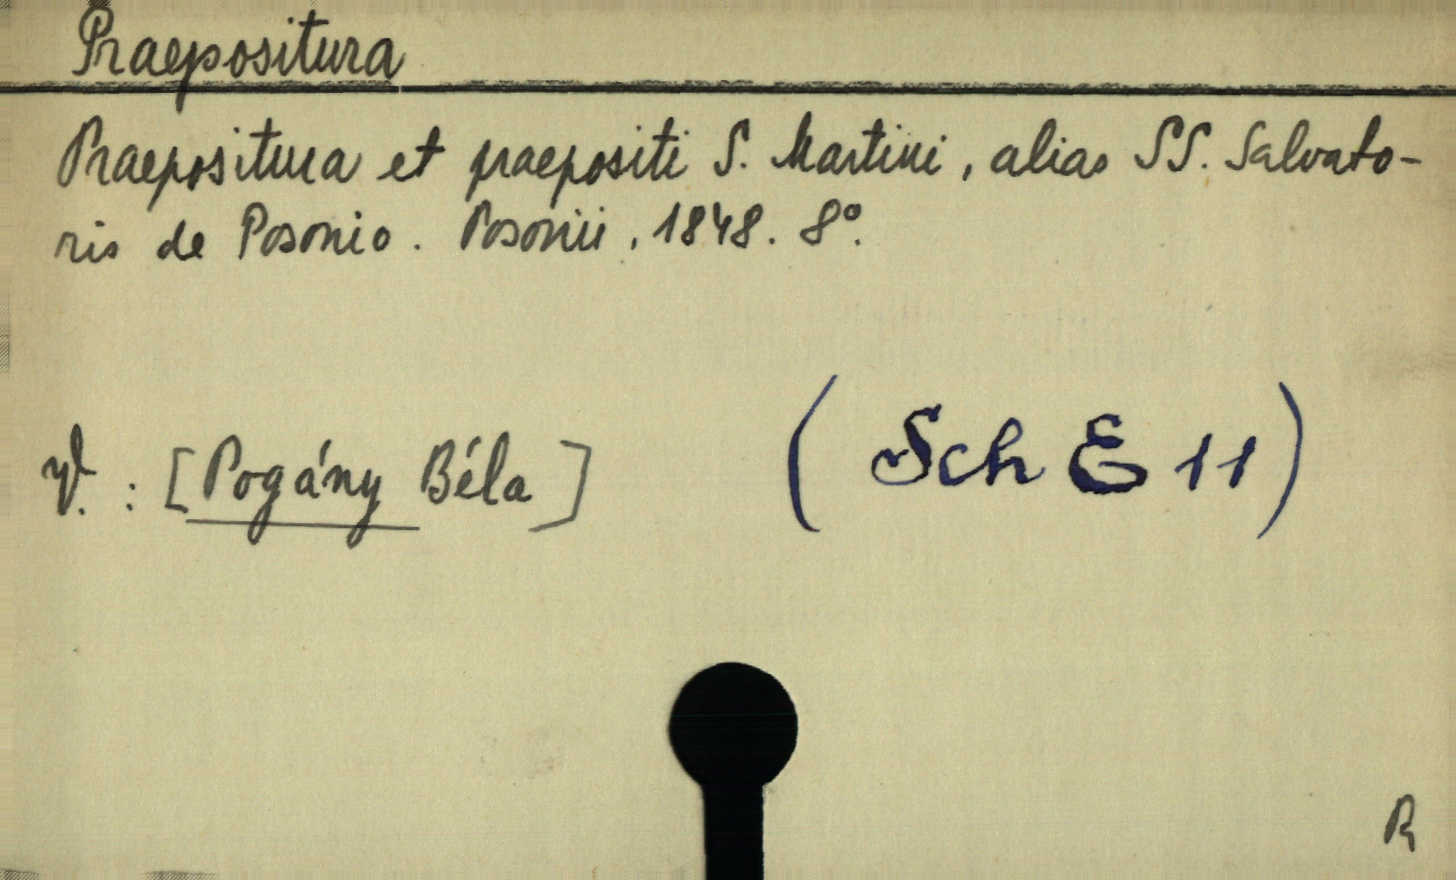 Praepositura
Praepositura et praepositi S. Martini, alias SS. Salvato-
ris de Posonio. Posonii, 1848. 8°.
V. : [Pogány Béla] (Sch E 11)
R